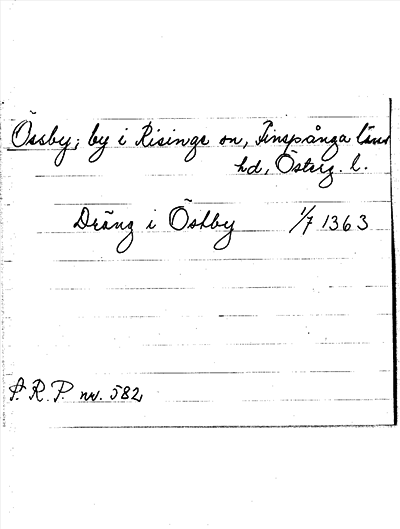 Össby; by i Risinge sn, Finspånga läns
hd, Österg. l.
Dräng i Östby 1/7 1363
S. R. P. nr. 582